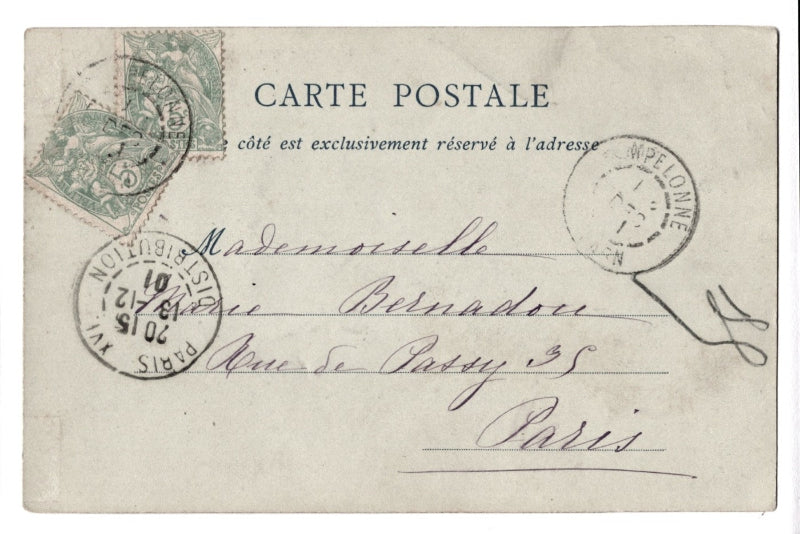 CARTE POSTALE
côté est exclusivement réservé à l'adresse
MPELONNE
Mademoiselle
Marie Bernadou
Rue de Passy 35
Paris
PARIS XVI DISTRIBUTION
20 15
13 -12
01